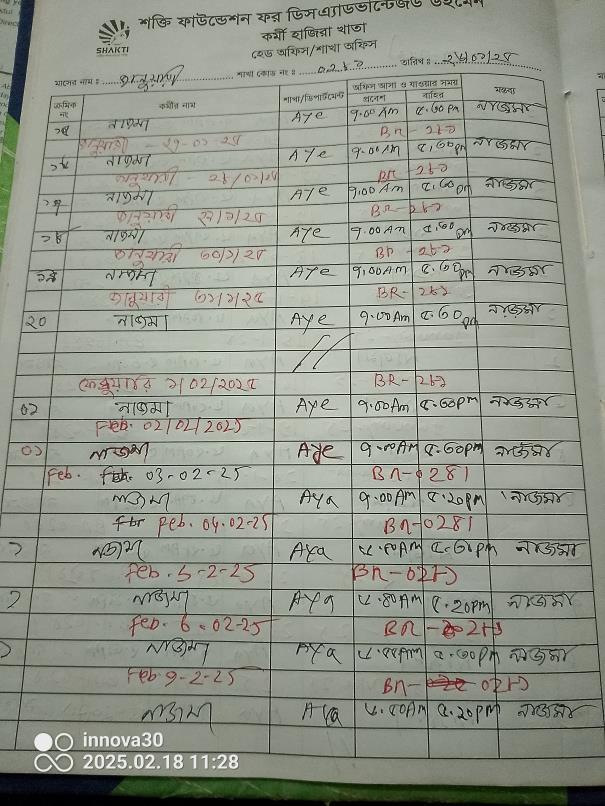 শক্তি ফাউন্ডেশন ফর ডিসএ্যাডভান্টেজড উইমেন
কর্মী হাজিরা খাতা
হেড অফিস/শাখা অফিস
SHAKTI
মাসের নাম : জানুয়ারী শাখা কোড নং : ০২৮১ তারিখ :
ক্রমিক নং কর্মীর নাম শাখা/ডিপার্টমেন্ট অফিস আসা ও যাওয়ার সময় মন্তব্য
প্রবেশ বাহির
নাজমা Aye 9.00 Am ৫.৩০ pm নাজমা
জানুয়ারী - ২৭-০১-২৫ BR-২৮১
নাজমা Aye 9.00 AM ৫.৩০pm নাজমা
জানুয়ারী - ২৮/০১/২৫ BR-২৮১
নাজমা Aye 9.00 AM ৫.৩০pm নাজমা
জানুয়ারী ২৯/১/২৫ BR-২৮১
নাজমা Aye 9.00 AM ৫.৩০pm নাজমা
জানুয়ারী ৩০/১/২৫ BR-২৮১
১৯ নাজমা Aye 9.00Am ৫.৩০pm নাজমা
জানুয়ারী ৩১/১/২৫ BR-২৮১
২০ নাজমা Aye 9.00Am ৫.৩০pm নাজমা
ফেব্রুয়ারি ১/02/202৫ BR-২৮১
০১ নাজমা Aye 9.00Am ৫.৩০pm নাজমা
Feb. 02/02/2025
নাজমা Aye 9.00Am ৫.৩০pm নাজমা
Feb. 03-02-25 BR-0281
নাজমা Aya 9.00Am ৫.20pm নাজমা
Feb. 04.02-25 BR-0281
নাজমা Aya ৫.৩০pm নাজমা
Feb. 5-2-25
নাজমা Aya ৫.20pm নাজমা
Feb. 6-02-25
নাজমা Aya ৫.৩০pm নাজমা
Feb 9-2-25
নাজমা Aya ৫.20pm নাজমা
innova30
2025.02.18 11:28